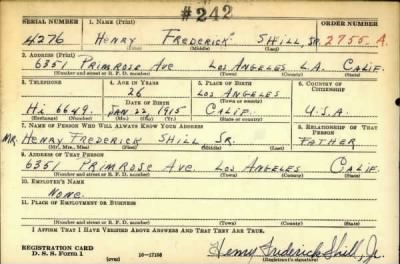 #242
SERIAL NUMBER 1. NAME (Print) ORDER NUMBER
4276 HENRY FREDERICK SHILL, JR. 2755.A.
(First) (Middle) (Last)
2. ADDRESS (Print)
6351 PRIMROSE AVE LOS ANGELES L.A. CALIF.
(Number and street or R. F. D. number) (Town) (County) (State)
3. TELEPHONE 4. AGE IN YEARS 5. PLACE OF BIRTH 6. COUNTRY OF CITIZENSHIP
26 LOS ANGELES
DATE OF BIRTH (Town or county)
Hi 6649. JAN 22 1915 CALIF. U.S.A.
(Exchange) (Number) (Mo.) (Day) (Yr.) (State or country)
7. NAME OF PERSON WHO WILL ALWAYS KNOW YOUR ADDRESS 8. RELATIONSHIP OF THAT PERSON
MR. HENRY FREDERICK SHILL SR. FATHER
(Mr., Mrs., Miss) (First) (Middle) (Last)
9. ADDRESS OF THAT PERSON
6351 PRIMROSE AVE. LOS ANGELES CALIF.
(Number and street or R. F. D. number) (Town) (County) (State)
10. EMPLOYER'S NAME
NONE
11. PLACE OF EMPLOYMENT OR BUSINESS
(Number and street or R. F. D. number) (Town) (County) (State)
I AFFIRM THAT I HAVE VERIFIED ABOVE ANSWERS AND THAT THEY ARE TRUE.
REGISTRATION CARD
D. S. S. FORM 1 (over) 16-17105 Henry Frederick Shill, Jr.
(Registrant's signature)